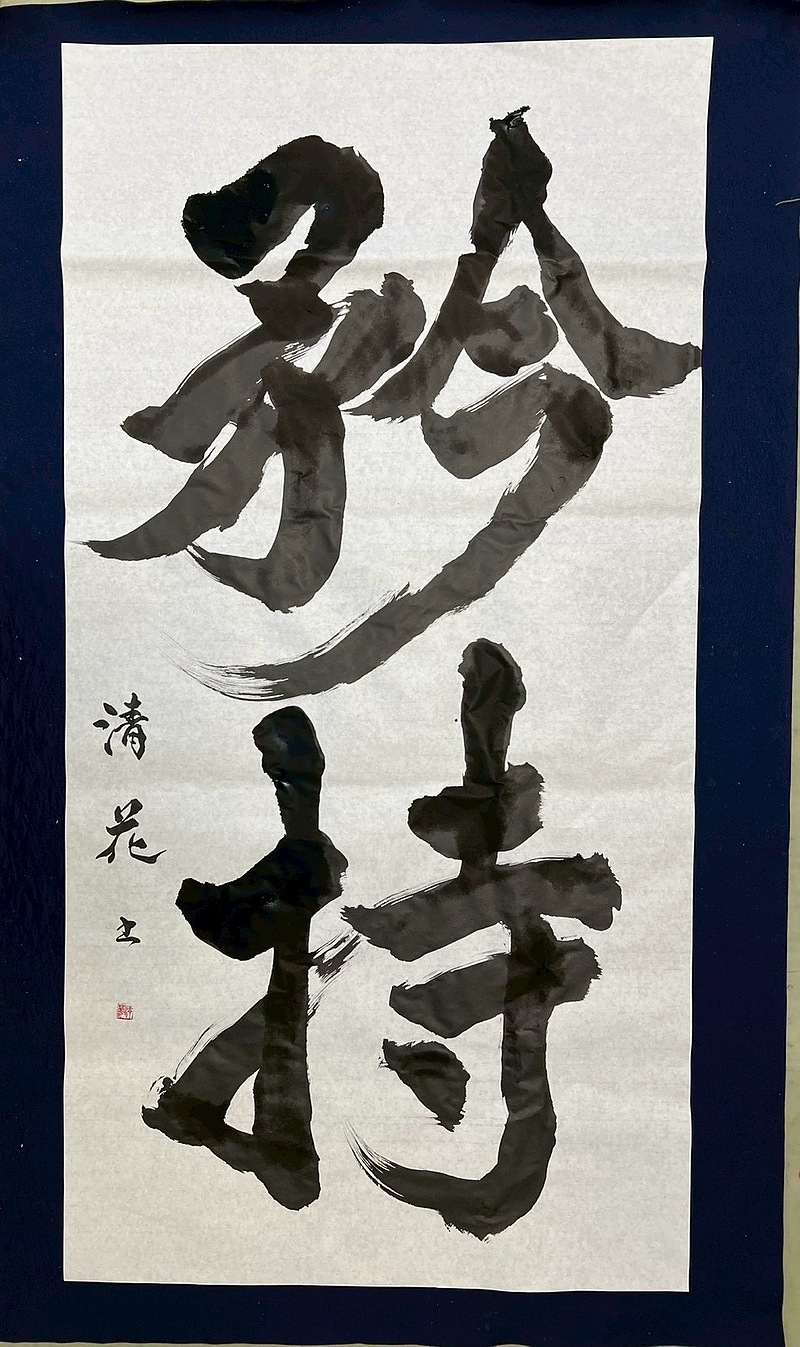 矜持
清花書